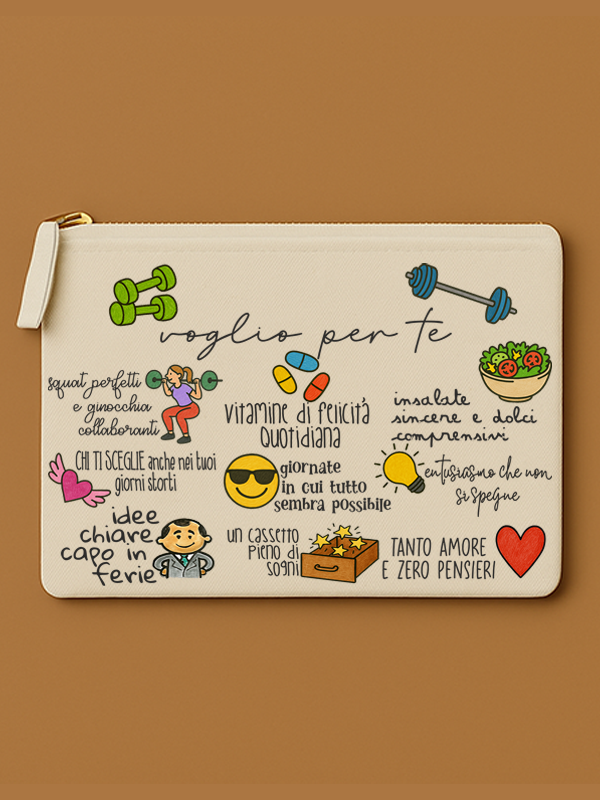 voglio per te
squat perfetti
e ginocchia
collaboranti
vitamine di felicità
quotidiana
insalate
sincere e dolci
comprensivi
CHI TI SCEGLIE anche nei tuoi
giorni storti
giornate
in cui tutto
sembra possibile
entusiasmo che non
si spegne
idee
chiare
capo in
ferie
un cassetto
pieno di
sogni
TANTO AMORE
E ZERO PENSIERI